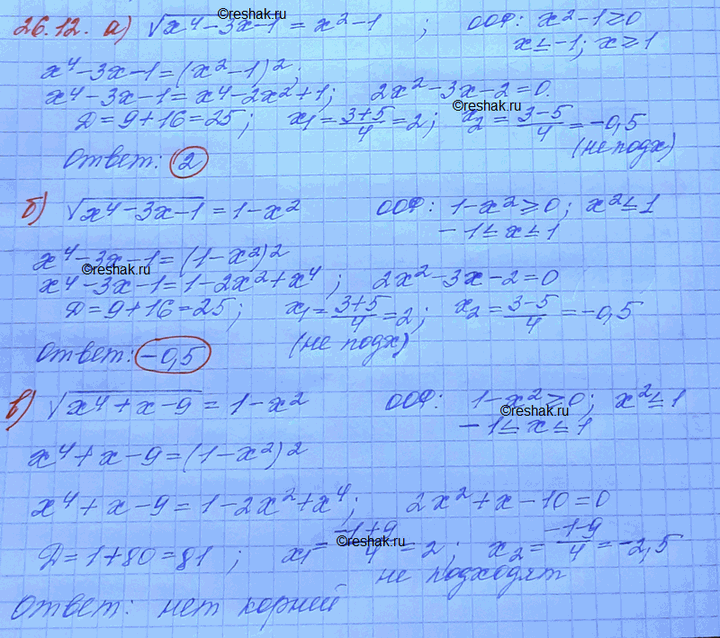 ©reshak.ru
26.12. а) √x⁴-3x-1 = x²-1 ; ООФ: x²-1≥0
x≤-1; x≥1
x⁴-3x-1=(x²-1)²;
x⁴-3x-1=x⁴-2x²+1; 2x²-3x-2=0.
©reshak.ru
Д=9+16=25; x₁=3+5/4=2; x₂=3-5/4=-0,5
(не подх)
Ответ: 2
б) √x⁴-3x-1=1-x² ООФ: 1-x²≥0; x²≤1
-1≤x≤1
x⁴-3x-1=(1-x²)²
©reshak.ru
x⁴-3x-1=1-2x²+x⁴; 2x²-3x-2=0
Д=9+16=25; x₁=3+5/4=2; x₂=3-5/4=-0,5
(не подх)
Ответ: -0,5
в) √x⁴+x-9=1-x² ООФ: 1-x²≥0; x²≤1
©reshak.ru
-1≤x≤1
x⁴+x-9=(1-x²)²
x⁴+x-9=1-2x²+x⁴; 2x²+x-10=0
Д=1+80=81; x₁=-1+9/4=2; x₂=-1-9/4=-2,5
©reshak.ru
не подходят
Ответ: нет корней